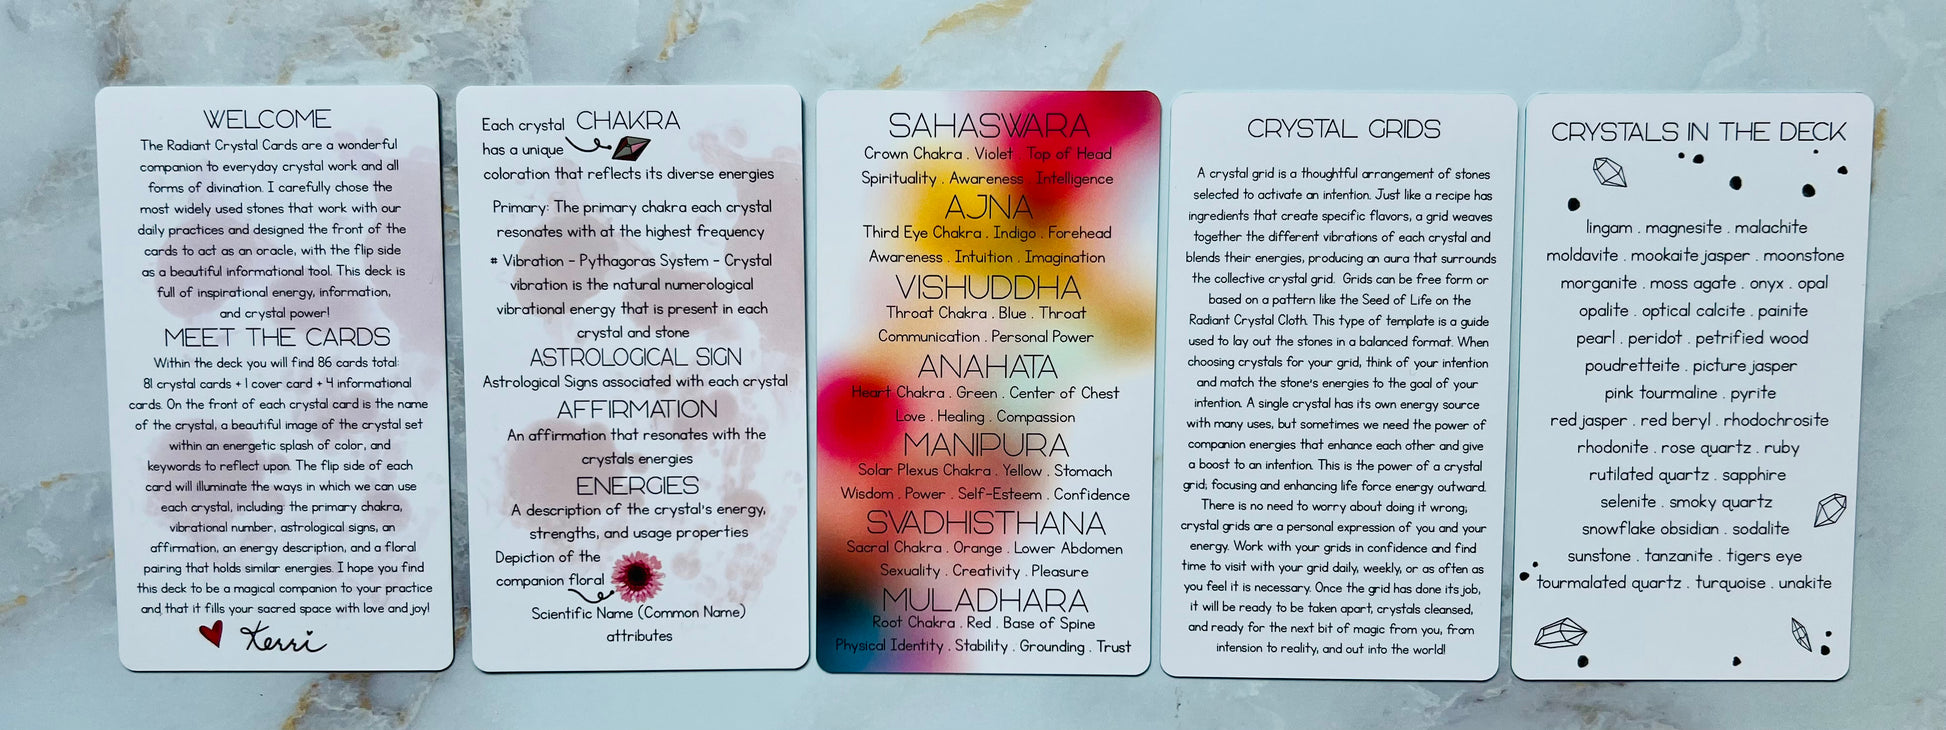 WELCOME
The Radiant Crystal Cards are a wonderful
companion to everyday crystal work and all
forms of divination. I carefully chose the
most widely used stones that work with our
daily practices and designed the front of the
cards to act as an oracle, with the flip side
as a beautiful informational tool. This deck is
full of inspirational energy, information,
and crystal power!
MEET THE CARDS
Within the deck you will find 86 cards total:
81 crystal cards + 1 cover card + 4 informational
cards. On the front of each crystal card is the name
of the crystal, a beautiful image of the crystal set
within an energetic splash of color, and
keywords to reflect upon. The flip side of each
card will illuminate the ways in which we can use
each crystal, including: the primary chakra,
vibrational number, astrological signs, an
affirmation, an energy description, and a floral
pairing that holds similar energies. I hope you find
this deck to be a magical companion to your practice
and, that it fills your sacred space with love and joy!
Kerri
CHAKRA
Each crystal
has a unique
coloration that reflects its diverse energies
Primary: The primary chakra each crystal
resonates with at the highest frequency
# Vibration - Pythagoras System - Crystal
vibration is the natural numerological
vibrational energy that is present in each
crystal and stone
ASTROLOGICAL SIGN
Astrological Signs associated with each crystal
AFFIRMATION
An affirmation that resonates with the
crystals energies
ENERGIES
A description of the crystal's energy,
strengths, and usage properties
Depiction of the
companion floral
Scientific Name (Common Name)
attributes
SAHASWARA
Crown Chakra . Violet . Top of Head
Spirituality . Awareness . Intelligence
AJNA
Third Eye Chakra . Indigo . Forehead
Awareness . Intuition . Imagination
VISHUDDHA
Throat Chakra . Blue . Throat
Communication . Personal Power
ANAHATA
Heart Chakra . Green . Center of Chest
Love . Healing . Compassion
MANIPURA
Solar Plexus Chakra . Yellow . Stomach
Wisdom . Power . Self-Esteem . Confidence
SVADHISTHANA
Sacral Chakra . Orange . Lower Abdomen
Sexuality . Creativity . Pleasure
MULADHARA
Root Chakra . Red . Base of Spine
Physical Identity . Stability . Grounding . Trust
CRYSTAL GRIDS
A crystal grid is a thoughtful arrangement of stones
selected to activate an intention. Just like a recipe has
ingredients that create specific flavors, a grid weaves
together the different vibrations of each crystal and
blends their energies, producing an aura that surrounds
the collective crystal grid. Grids can be free form or
based on a pattern like the Seed of Life on the
Radiant Crystal Cloth. This type of template is a guide
used to lay out the stones in a balanced format. When
choosing crystals for your grid, think of your intention
and match the stone's energies to the goal of your
intention. A single crystal has its own energy source
with many uses, but sometimes we need the power of
companion energies that enhance each other and give
a boost to an intention. This is the power of a crystal
grid; focusing and enhancing life force energy outward.
There is no need to worry about doing it wrong;
crystal grids are a personal expression of you and your
energy. Work with your grids in confidence and find
time to visit with your grid daily, weekly, or as often as
you feel it is necessary. Once the grid has done its job,
it will be ready to be taken apart, crystals cleansed,
and ready for the next bit of magic from you, from
intension to reality, and out into the world!
CRYSTALS IN THE DECK
lingam . magnesite . malachite
moldavite . mookaite jasper . moonstone
morganite . moss agate . onyx . opal
opalite . optical calcite . painite
pearl . peridot . petrified wood
poudretteite . picture jasper
pink tourmaline . pyrite
red jasper . red beryl . rhodochrosite
rhodonite . rose quartz . ruby
rutilated quartz . sapphire
selenite . smoky quartz
snowflake obsidian . sodalite
sunstone . tanzanite . tigers eye
tourmalated quartz . turquoise . unakite